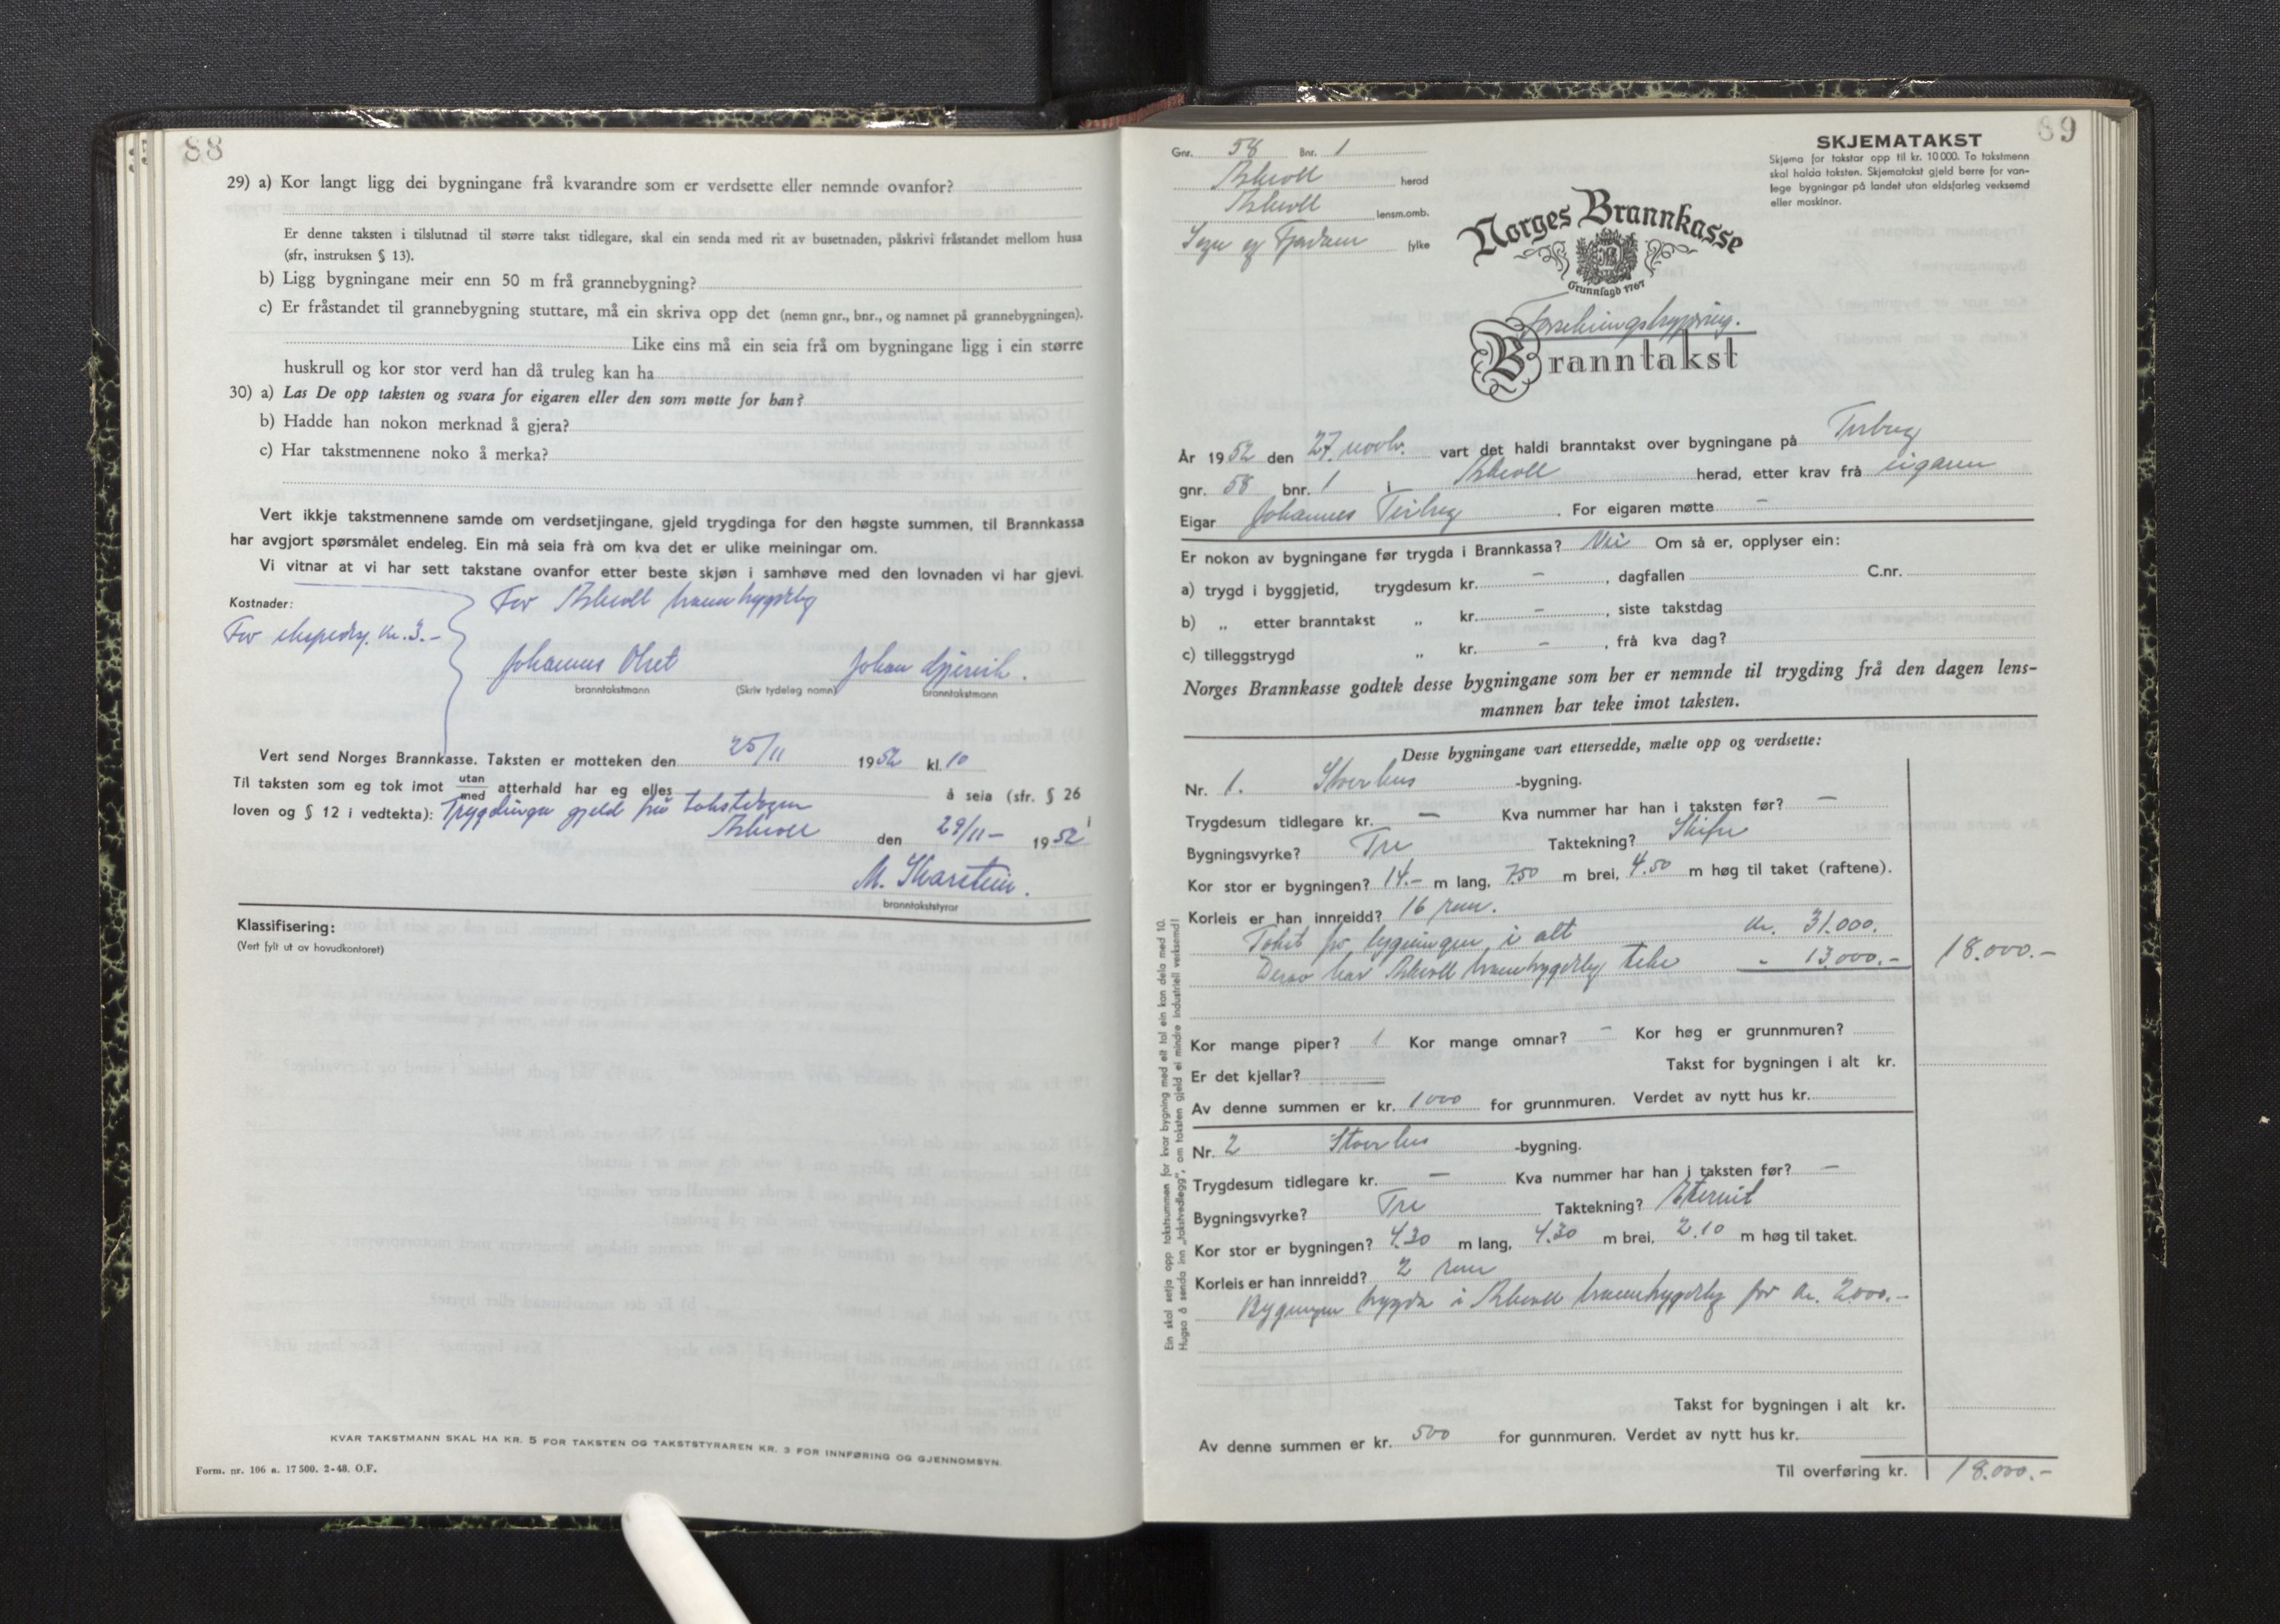 88
29) a) Kor langt ligg dei bygningane frå kvarandre som er verdsette eller nemnde ovanfor?
Er denne taksten i tilslutnad til større takst tidlegare, skal ein senda med rit av busetnaden, påskrivi fråstandet mellom husa
(sfr, instruksen § 13).
b) Ligg bygningane meir enn 50 m frå grannebygning?
c) Er fråstandet til grannebygning stuttare, må ein skriva opp det (nemn gnr., bnr., og namnet på grannebygningen).
Like eins må ein seia frå om bygningane ligg i ein større
huskrull og kor stor verd han då truleg kan ha
30) a) Las De opp taksten og svara for eigaren eller den som møtte for han?
b) Hadde han nokon merknad å gjera?
c) Har takstmennene noko å merka?
Vert ikkje takstmennene samde om verdsetjingane, gjeld trygdinga for den høgste summen, til Brannkassa
har avgjort spørsmålet endeleg. Ein må seia frå om kva det er ulike meiningar om.
Vi vitnar at vi har sett takstane ovanfor etter beste skjøn i samhøve med den lovnaden vi har gjevi.
Kostnader:
For Askvoll branntrygdelag
For ekspedisj. kr. 3.-
Johannes Olset Johan Gjervik.
branntakstmann (Skriv tydeleg namn) branntakstmann
Vert send Norges Brannkasse. Taksten er motteken den 25/11 1952 kl. 10
Til taksten som eg tok imot utan/med atterhald har eg elles å seia (sfr. § 26 i
loven og § 12 i vedtekta): Trygdinga gjeld frå takstdagen
Askvoll den 29/11 - 1952
M. Skarstein.
branntakststyrar
Klassifisering:
(Vert fylt ut av hovudkontoret)
KVAR TAKSTMANN SKAL HA KR. 5 FOR TAKSTEN OG TAKSTSTYRAREN KR. 3 FOR INNFØRING OG GJENNOMSYN.
Form. nr. 106 a. 17 500. 2-48. O.F.
89
Gnr. 58 Bnr. 1
Askvoll herad
Askvoll lensm.omb.
Sogn og Fjordane fylke
SKJEMATAKST
Skjema for takstar opp til kr. 10 000. To takstmenn
skal halda taksten. Skjematakst gjeld berre for van-
lege bygningar på landet utan eldsfarleg verksemd
eller maskinar.
Norges Brannkasse
Grunnlagd 1767
Forsikringstrygding.
Branntakst
År 1952 den 27. novbr. vart det haldi branntakst over bygningane på
gnr. 58 bnr. 1 i Askvoll herad, etter krav frå eigaren
Eigar Johannes For eigaren møtte -
Er nokon av bygningane før trygda i Brannkassa? Nei Om så er, opplyser ein:
a) trygd i byggjetid, trygdesum kr. - , dagfallen C.nr.
b) „ etter branntakst „ kr. - , siste takstdag
c) tilleggstrygd „ kr. - , frå kva dag?
Norges Brannkasse godtek desse bygningane som her er nemnde til trygding frå den dagen lens-
mannen har teke imot taksten.
Desse bygningane vart ettersedde, mælte opp og verdsette:
Nr. 1. Stoverhus -bygning.
Trygdesum tidlegare kr. - Kva nummer har han i taksten før? -
Bygningsvyrke? Tre Taktekning? Skifer
Kor stor er bygningen? 14.- m lang, 7.50 m brei, 4.50 m høg til taket (raftene).
Korleis er han innreidd? 16 rum.
Takst for bygningen i alt kr. 31.000.
Derav har Askvoll branntrygdelag teke „ 13.000.- 18.000.-
Kor mange piper? 1 Kor mange omnar? - Kor høg er grunnmuren?
Er det kjellar? Takst for bygningen i alt kr.
Av denne summen er kr. 1000 for grunnmuren. Verdet av nytt hus kr.
Nr. 2 Stoverhus -bygning.
Trygdesum tidlegare kr. - Kva nummer har han i taksten før? -
Bygningsvyrke? Tre Taktekning? Eternit
Kor stor er bygningen? 4.30 m lang, 4.30 m brei, 2.10 m høg til taket.
Korleis er han innreidd? 2 rum
Bygningen trygda i Askvoll branntrygdelag for kr. 2000.-
Takst for bygningen i alt kr.
Av denne summen er kr. 500 for gunnmuren. Verdet av nytt hus kr.
Til overføring kr. 18.000.-
Ein skal setja opp takstsummen for kvar bygning med eit tal ein kan dela med 10.
Hugsa å senda inn „takstvedlegg", om taksten gjeld ei mindre industriell verksemd!